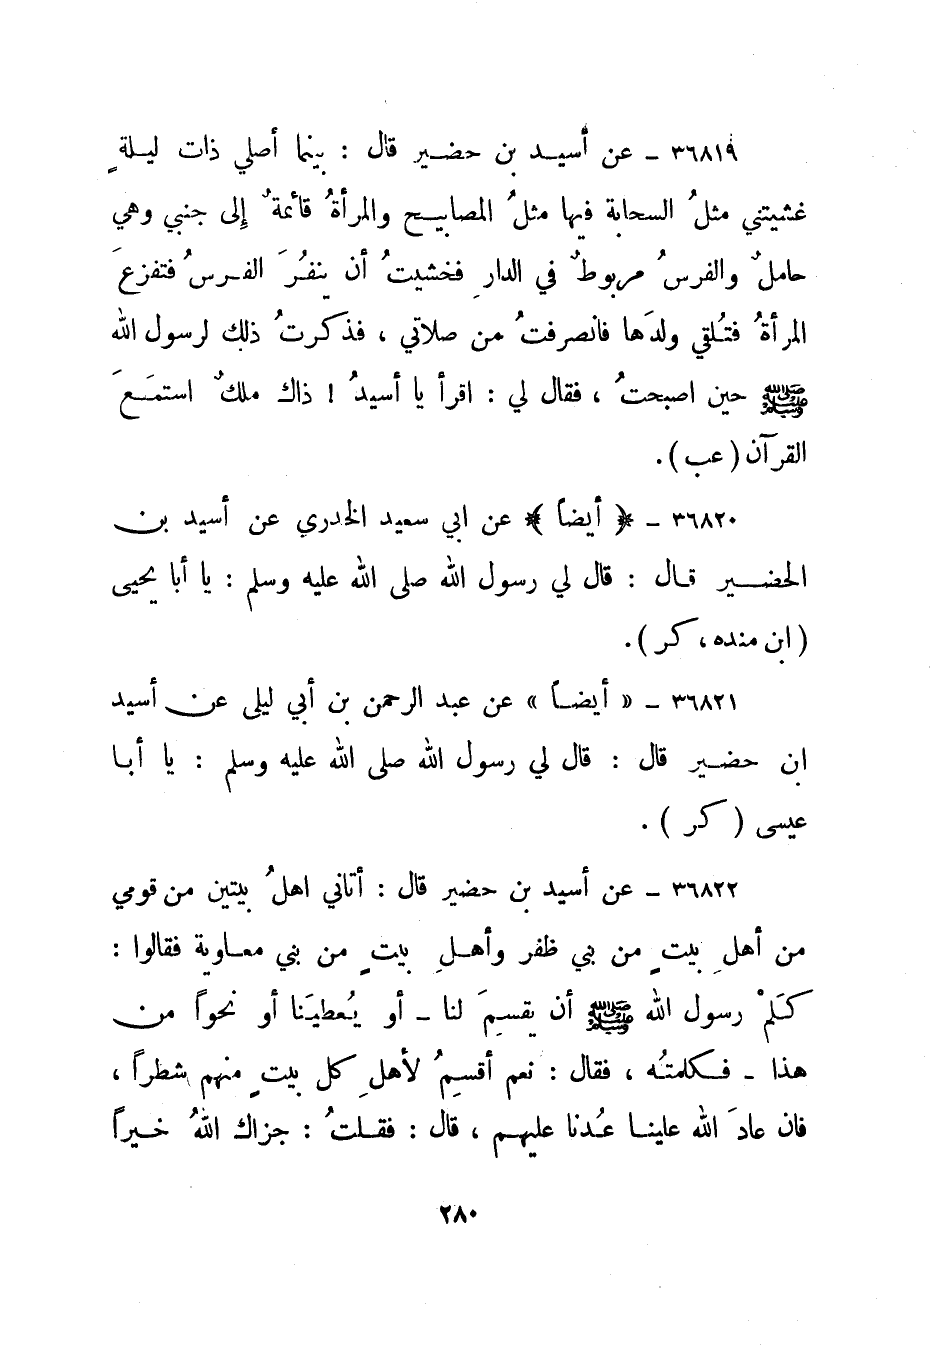 ٣٦٨١٩ ـ عن أسيد بن حضير قال : بينما أصلي ذات ليلةٍ
غشيتني مثلُ السحابة فيها مثلُ المصابيح والمرأةُ قائمةٌ إلى جنبي وهي
حاملٌ والفرسُ مربوطٌ في الدارِ فخشيتُ أن ينفُرَ الفرسُ فتفزعَ
المرأةُ فتُلقي ولدَها فانصرفتُ من صلاتي ، فذكرتُ ذلك لرسول الله
ﷺ حين اصبحتُ ، فقال لي : اقرأ يا أسيدُ ! ذاك ملكٌ استمَعَ
القرآن ( عب ) .
٣٦٨٢٠ ـ ﴿ أيضاً ﴾ عن ابي سعيد الخدري عن أسيد بن
الحضير قال : قال لي رسول الله صلى الله عليه وسلم : يا أبا يحيى
( ابن منده ، كر ) .
٣٦٨٢١ ـ « أيضاً » عن عبد الرحمن بن أبي ليلى عن أسيد
ابن حضير قال : قال لي رسول الله صلى الله عليه وسلم : يا أبا
عيسى ( كر ) .
٣٦٨٢٢ ـ عن أسيد بن حضير قال : أتاني اهلُ بيتين من قومي
من أهلِ بيتٍ من بني ظفر وأهلِ بيتٍ من بني معاوية فقالوا :
كَلمْ رسول الله ﷺ أن يقسمَ لنا ـ أو يُعطيَنا أو نحواً من
هذا ـ فكلمتُه ، فقال : نعم أقسِمُ لأهلِ كل بيتٍ منهم شطراً ،
فان عادَ الله علينا عُدنا عليهم ، قال : فقلتُ : جزاك اللهُ خيراً
٢٨٠